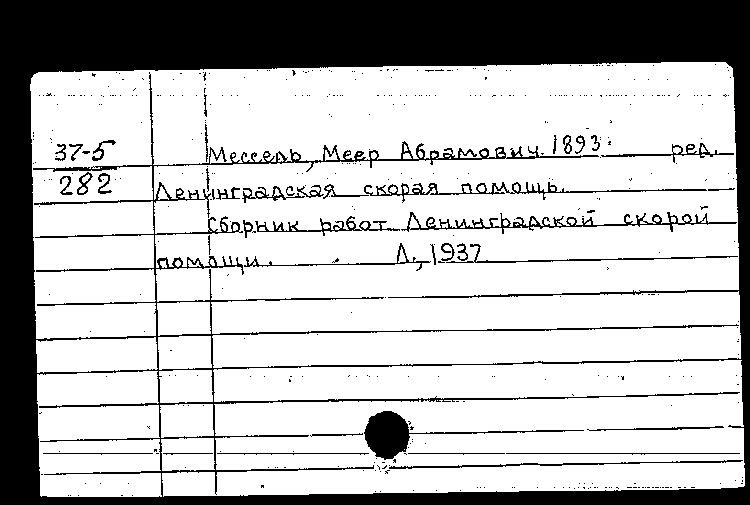 37-5
282
Мессель, Меер Абрамович. 1893. ред.
Ленинградская скорая помощь.
Сборник работ Ленинградской скорой
помощи. Л., 1937